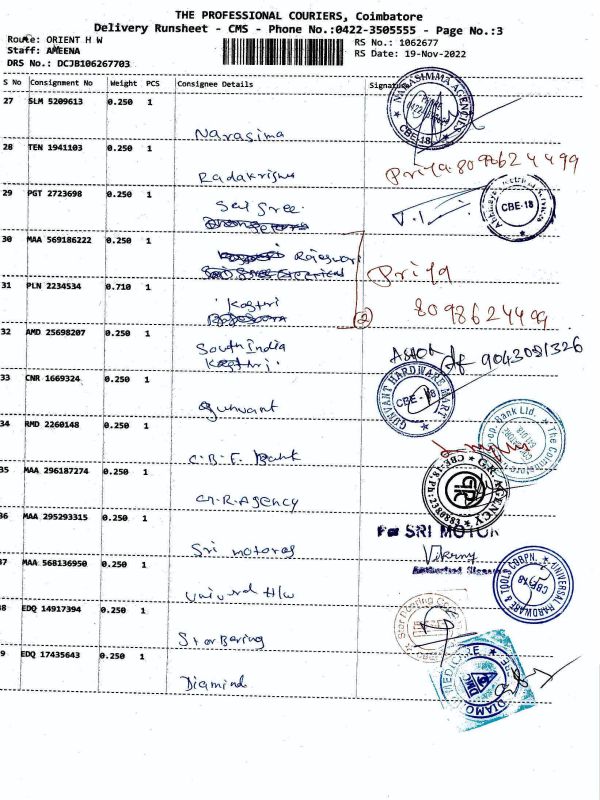 THE PROFESSIONAL COURIERS, Coimbatore
Delivery Runsheet - CMS - Phone No.:0422-3505555 - Page No.:3
Route: ORIENT H W
RS No.: 1062677
Staff: AMEENA
RS Date: 19-Nov-2022
DRS No.: DCJB106267703
S No Consignment No Weight PCS Consignee Details Signature
27 SLM 5209613 0.250 1
NARASIMMA AGENCIES
CBE-18
Narasima
28 TEN 1941103 0.250 1
Radakrisna
Priya 8098624499
29 PGT 2723698 0.250 1
Sri Sree
CBE-18
30 MAA 569186222 0.250 1
Rajeswari
Priya
31 PLN 2234534 0.710 1
Kasthri
2
8098624499
32 AMD 25698207 0.250 1
South India
9043091326
33 CNR 1669324 0.250 1
GURVANT HARDWARE MART
CBE-18
Gurvant
34 RMD 2260148 0.250 1
The Coimbatore
op. Bank Ltd.
C.B.F. Bank
35 MAA 296187274 0.250 1
G.R. AGENCY
GR
G.R. Agency
36 MAA 295293315 0.250 1
For SRI MOTOR
Sri motores
37 MAA 568136950 0.250 1
UNIVERSAL HARDWARE & TOOLS CORPN.
CBE-18
H/w
8 EDQ 14917394 0.250 1
Star Bearing
Star Baring
9 EDQ 17435643 0.250 1
DIAMOND MEDICARE
DMC
Diamind